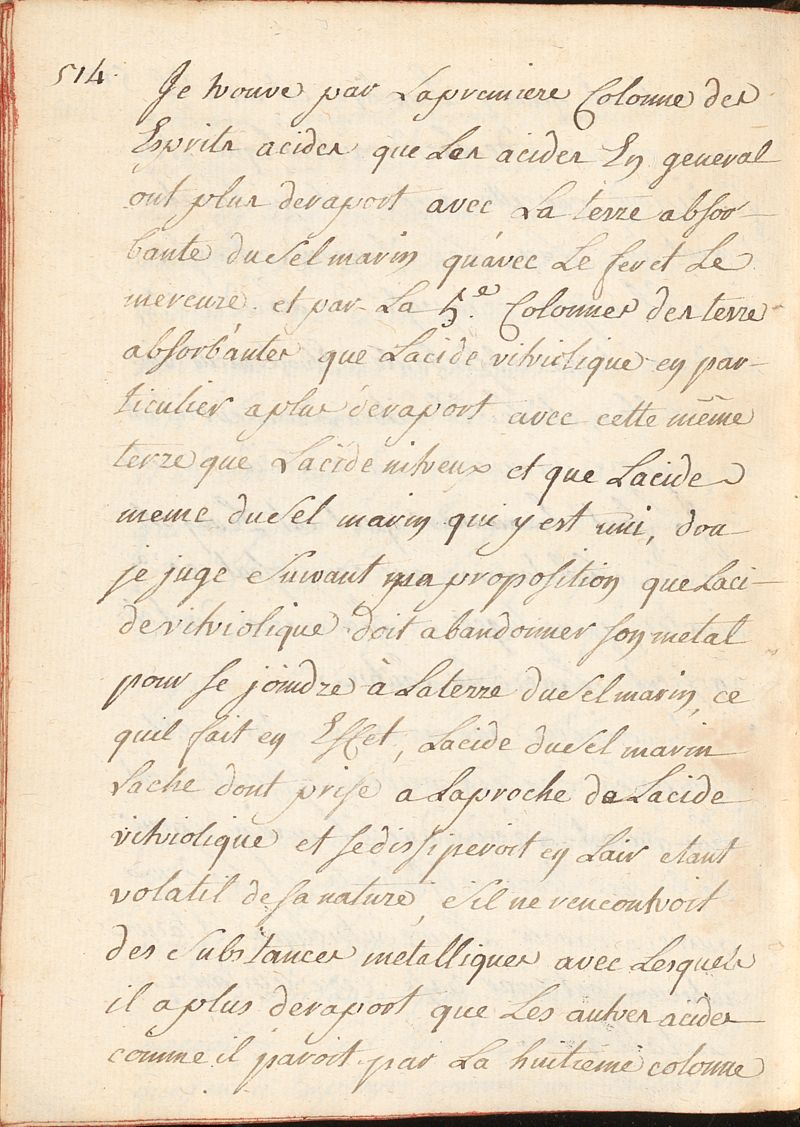 514.
Je trouve par La premiere Colonne des
Esprits acides que Les acides En general
ont plus deraport avec La terre absor-
bante du Sel marin qu'avec Le fer et Le
mercure. et par La 5.e Colonnes des terre
absorbantes que Lacide vitriolique en par-
ticulier a plus deraport avec cette même
terre que Lacide nitreux et que Lacide
meme du Sel marin qui y est uni, dou
je juge Suivant ma proposition que Laci-
de vitriolique doit abandonner son metal
pour se joindre à La terre du Sel marin, ce
quil fait en Effet, Lacide du Sel marin
Lache dont prise a Laproche de Lacide
vitriolique et se dissiperoit en Lair etant
volatil de sa nature, Sil ne rencontroit
des Substances metalliques avec Lesquels
il a plus deraport que Les autres acides
comme il paroit par La huitieme colonne